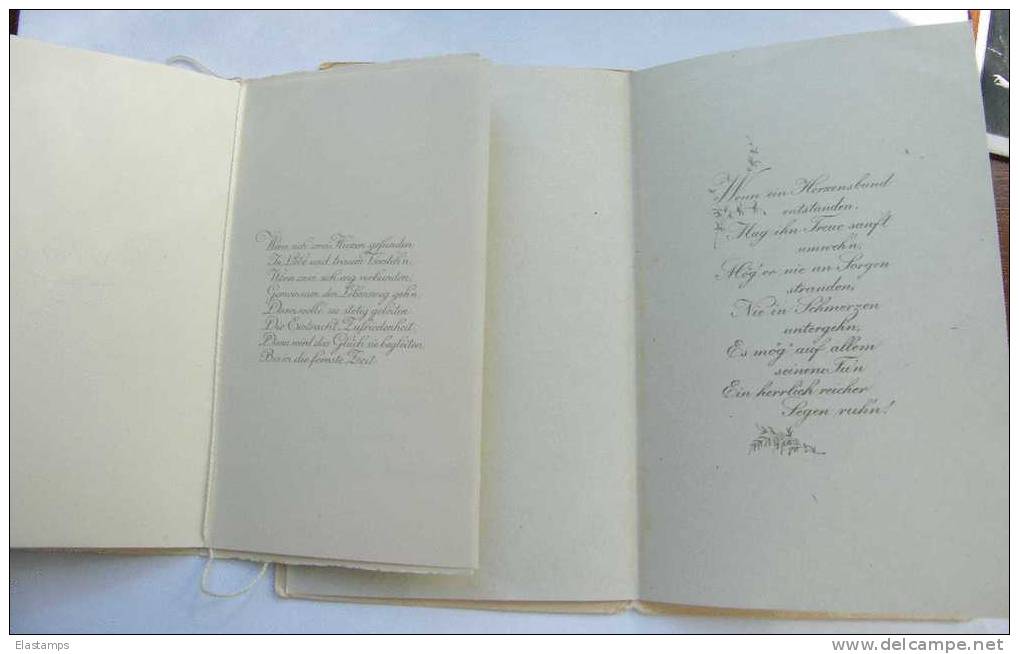 Wenn sich zwei Herzen gefunden
In Lieb' und traum Versteh'n,
Wenn zwei sich eng verbunden,
Gemeinsam den Lebensweg geh'n,
Dann wolle sie stetig geleiten
Die Eintracht, Zufriedenheit,
Dann wird das Glück sie begleiten
Bis in die fernste Zeit.
Wenn ein Herzensbund
entstanden,
Mag ihn Treue sanft
umweh'n,
Mög' er nie an Sorgen
stranden,
Nie in Schmerzen
untergehn,
Es mög' auf allem
seinem Tu'n
Ein herrlich reicher
Segen ruh'n!
Elastamps
delcampe.net